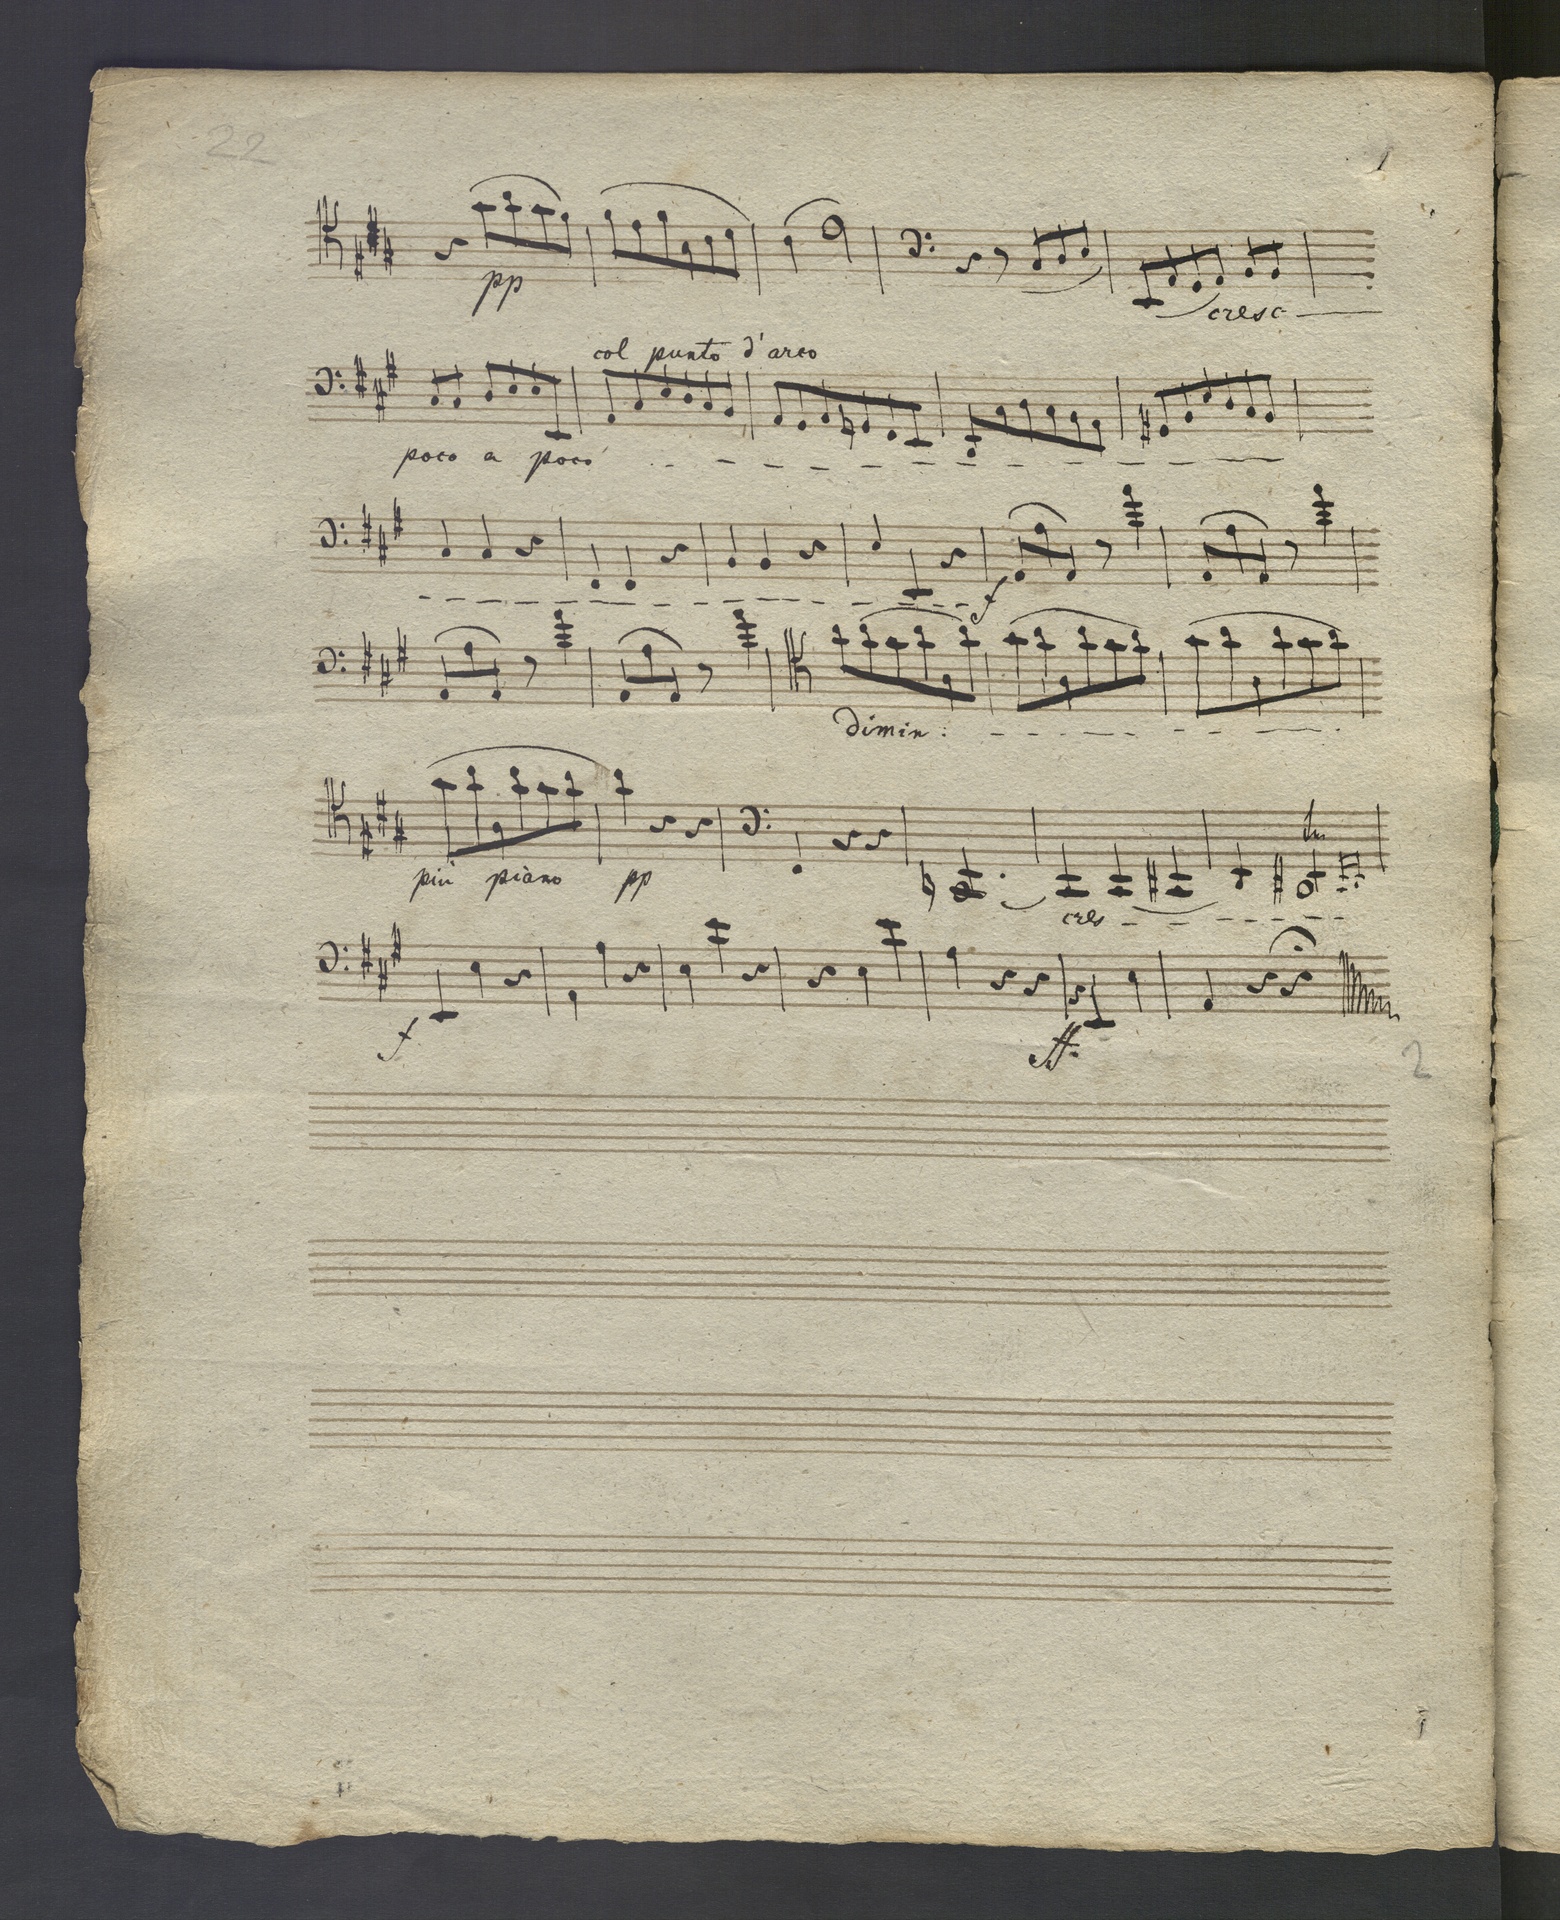 22
pp
cresc
col punto d'arco
poco a poco
f
dimin:
più piano pp
cres
f ff
2